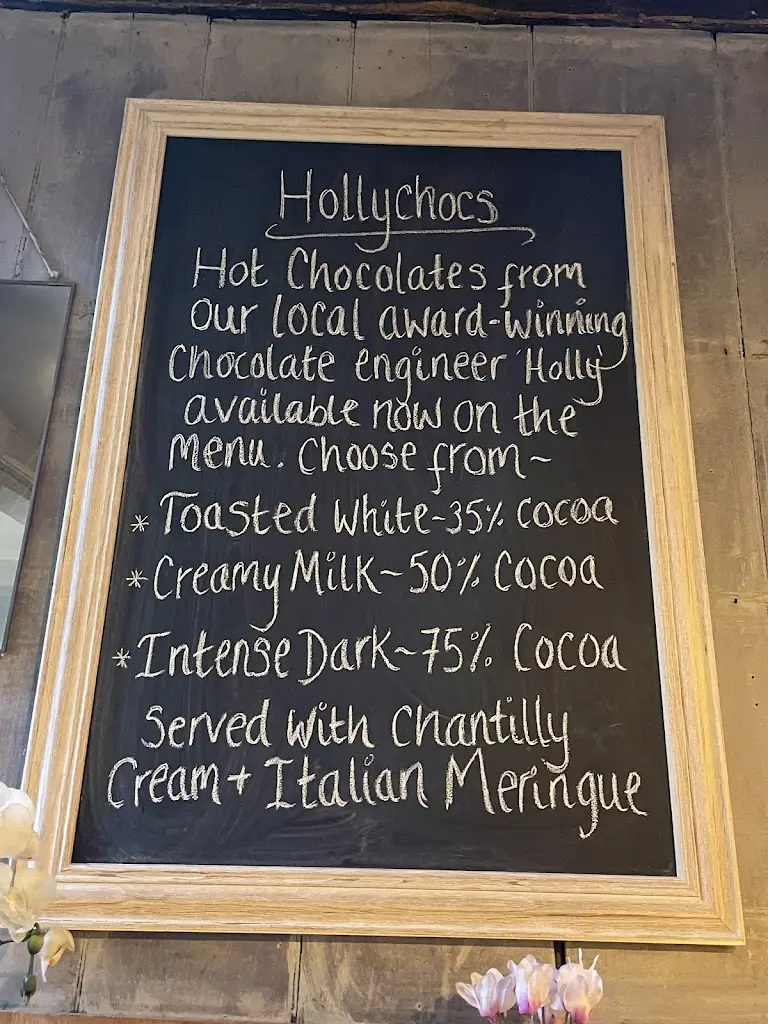 Hollychocs
Hot Chocolates from
our local award-winning
Chocolate engineer 'Holly'
available now on the
Menu. Choose from~
* Toasted White~35% Cocoa
* Creamy Milk~50% Cocoa
* Intense Dark~75% Cocoa
Served with Chantilly
Cream + Italian Meringue